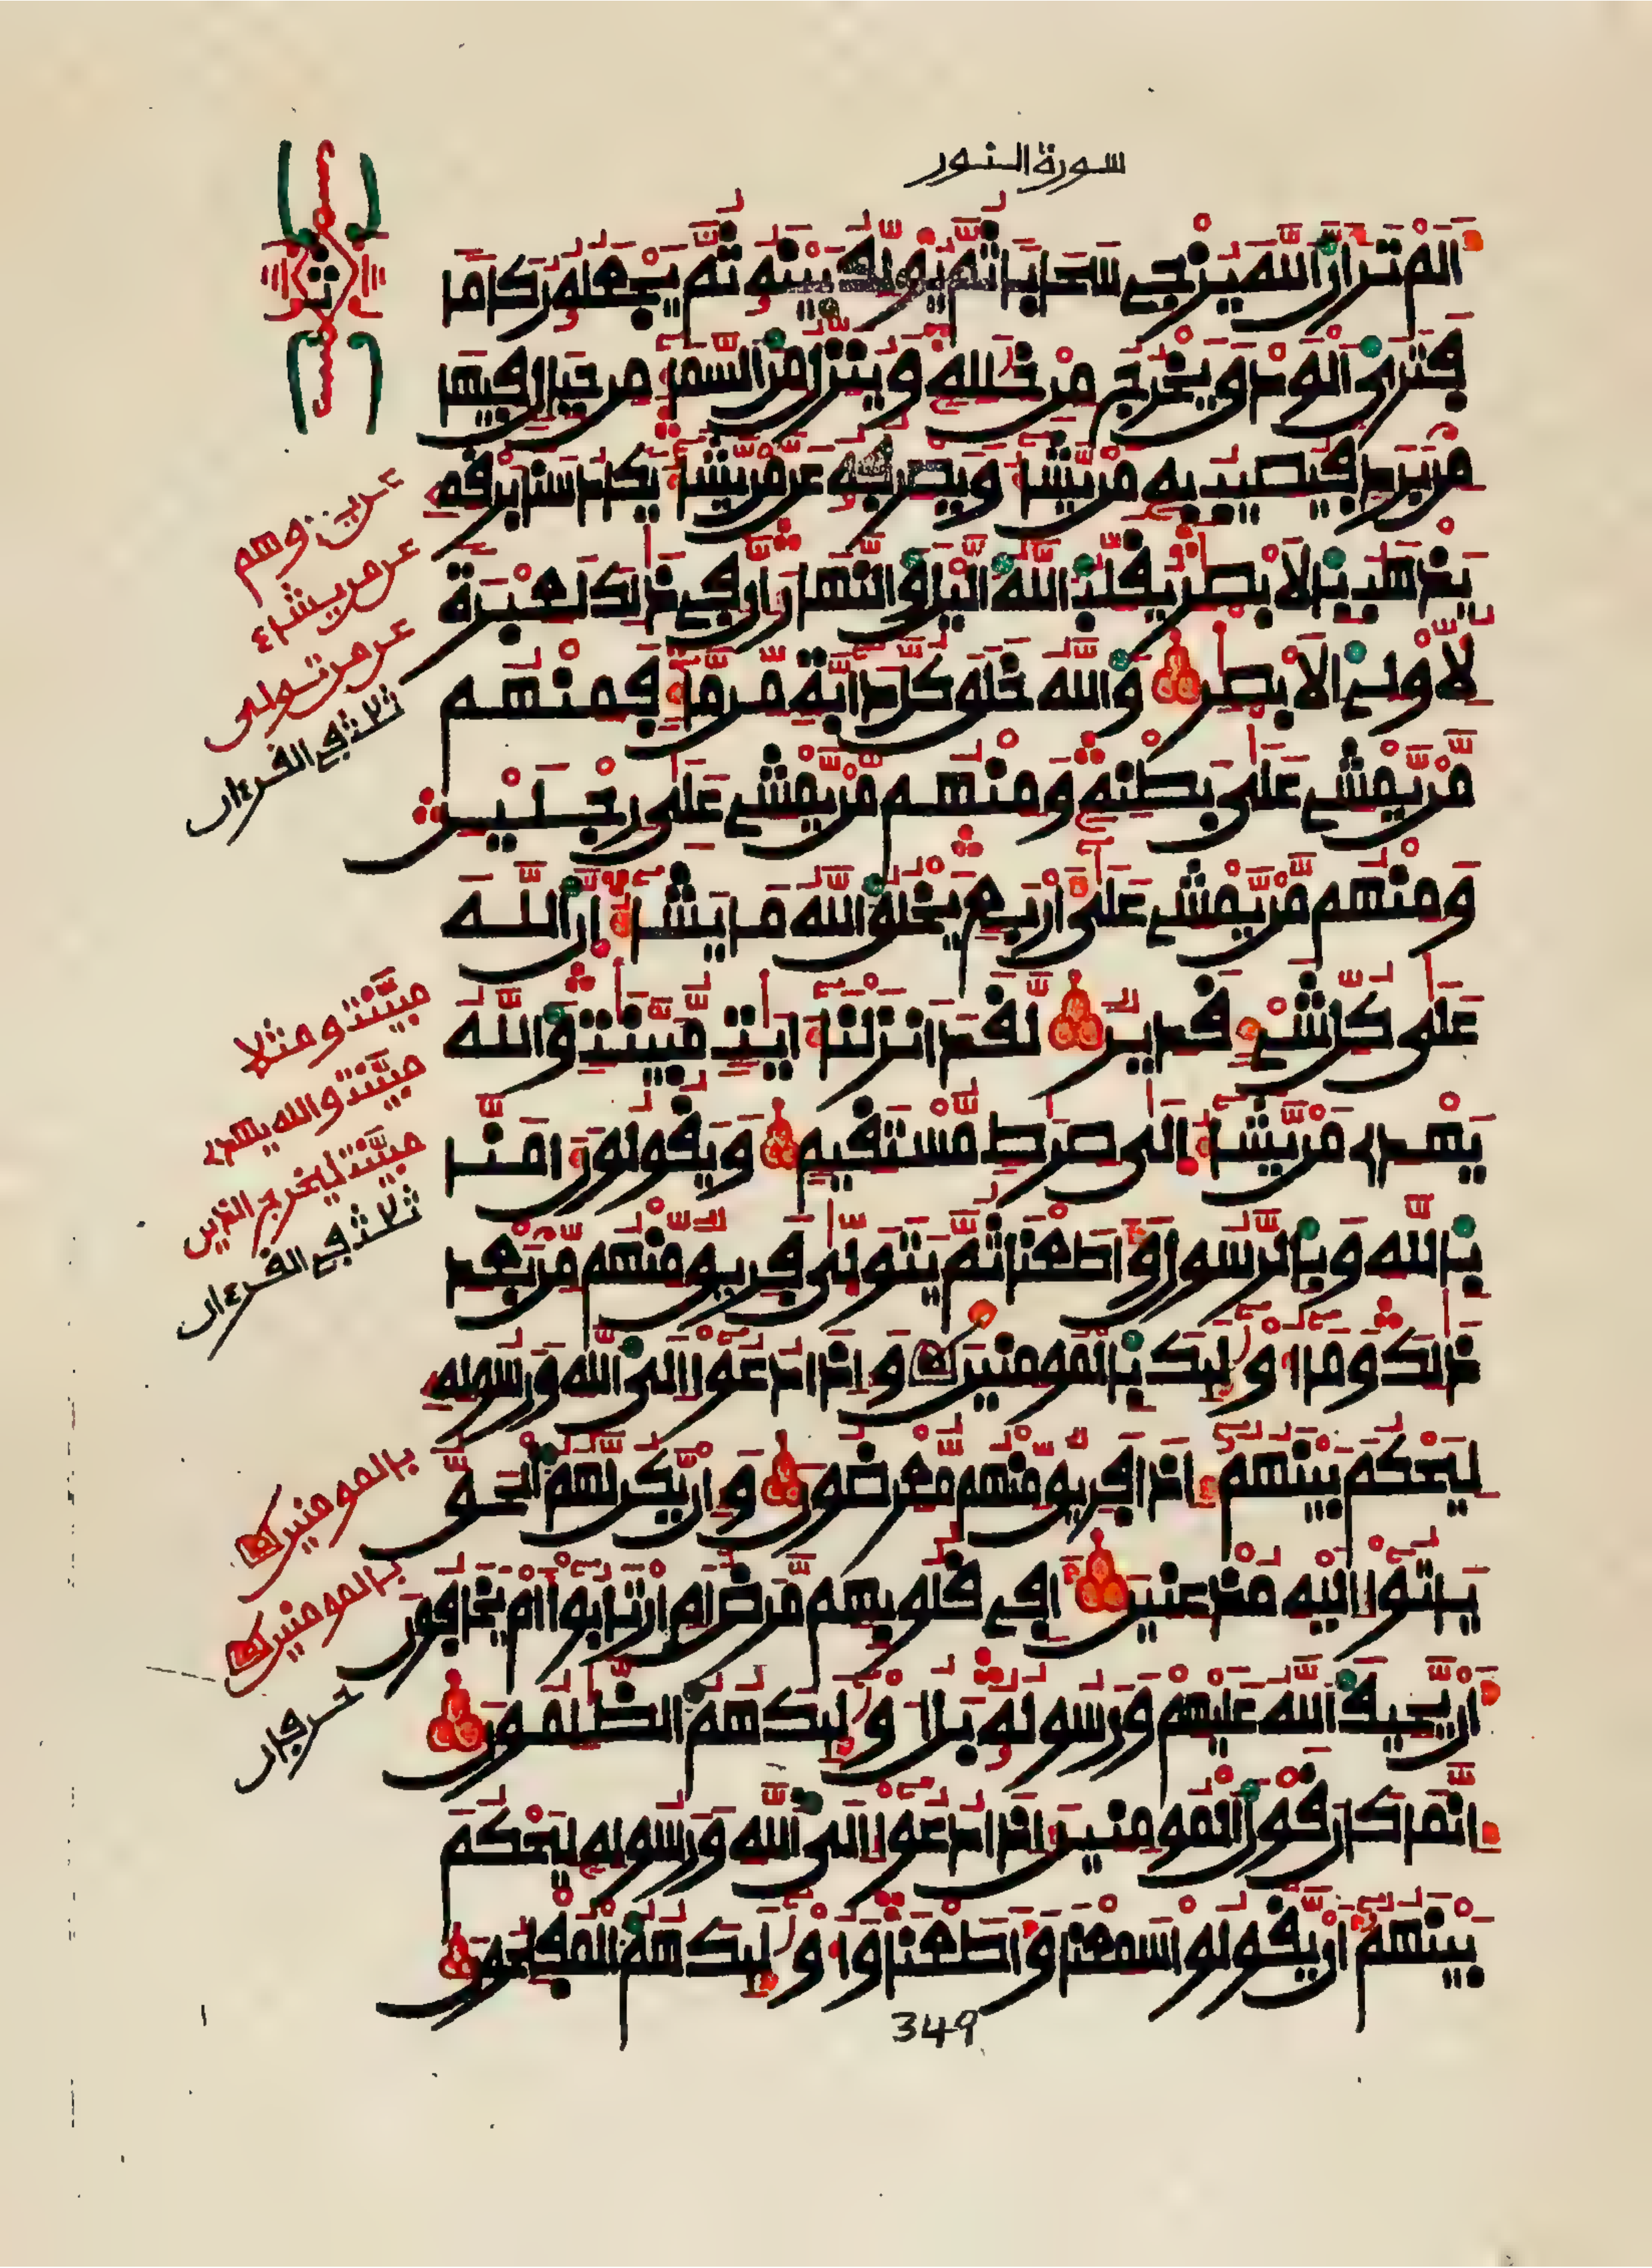 سورة النور
الم تر ان الله يزجي سحابا ثم يولف بينه ثم يجعله ركاما
فترى الودق يخرج من خلله وينزل من السما من جبال فيها
من برد فيصيب به من يشا ويصرفه عن من يشا يكاد سنا برقه
يذهب بالابصر يقلب الله اليل والنهار ان في ذلك لعبرة
لاولي الابصر والله خلق كل دابة من ما فمنهم
من يمشي على بطنه ومنهم من يمشي على رجلين
ومنهم من يمشي على اربع يخلق الله ما يشا ان الله
على كل شي قدير لقد انزلنا ايت مبينت والله
يهدي من يشا الى صرط مستقيم ويقولون امنا
بالله وبالرسول واطعنا ثم يتولى فريق منهم من بعد
ذلك وما اوليك بالمومنين واذا دعوا الى الله ورسوله
ليحكم بينهم اذا فريق منهم معرضون وان يكن لهم الحق
ياتوا اليه مذعنين افي قلوبهم مرض ام ارتابوا ام يخافون
ان يحيف الله عليهم ورسوله بل اوليك هم الظلمون
انما كان قول المومنين اذا دعوا الى الله ورسوله ليحكم
بينهم ان يقولوا سمعنا واطعنا واوليك هم المفلحون
عن من يشاء
عن من تولى
ثلاث في القرءان
مبينت ومثلا
مبينت والله يهدي
مبينت ليخرج الذين
ثلاث في القرءان
بالمومنين
بالمومنين
حرفان
349